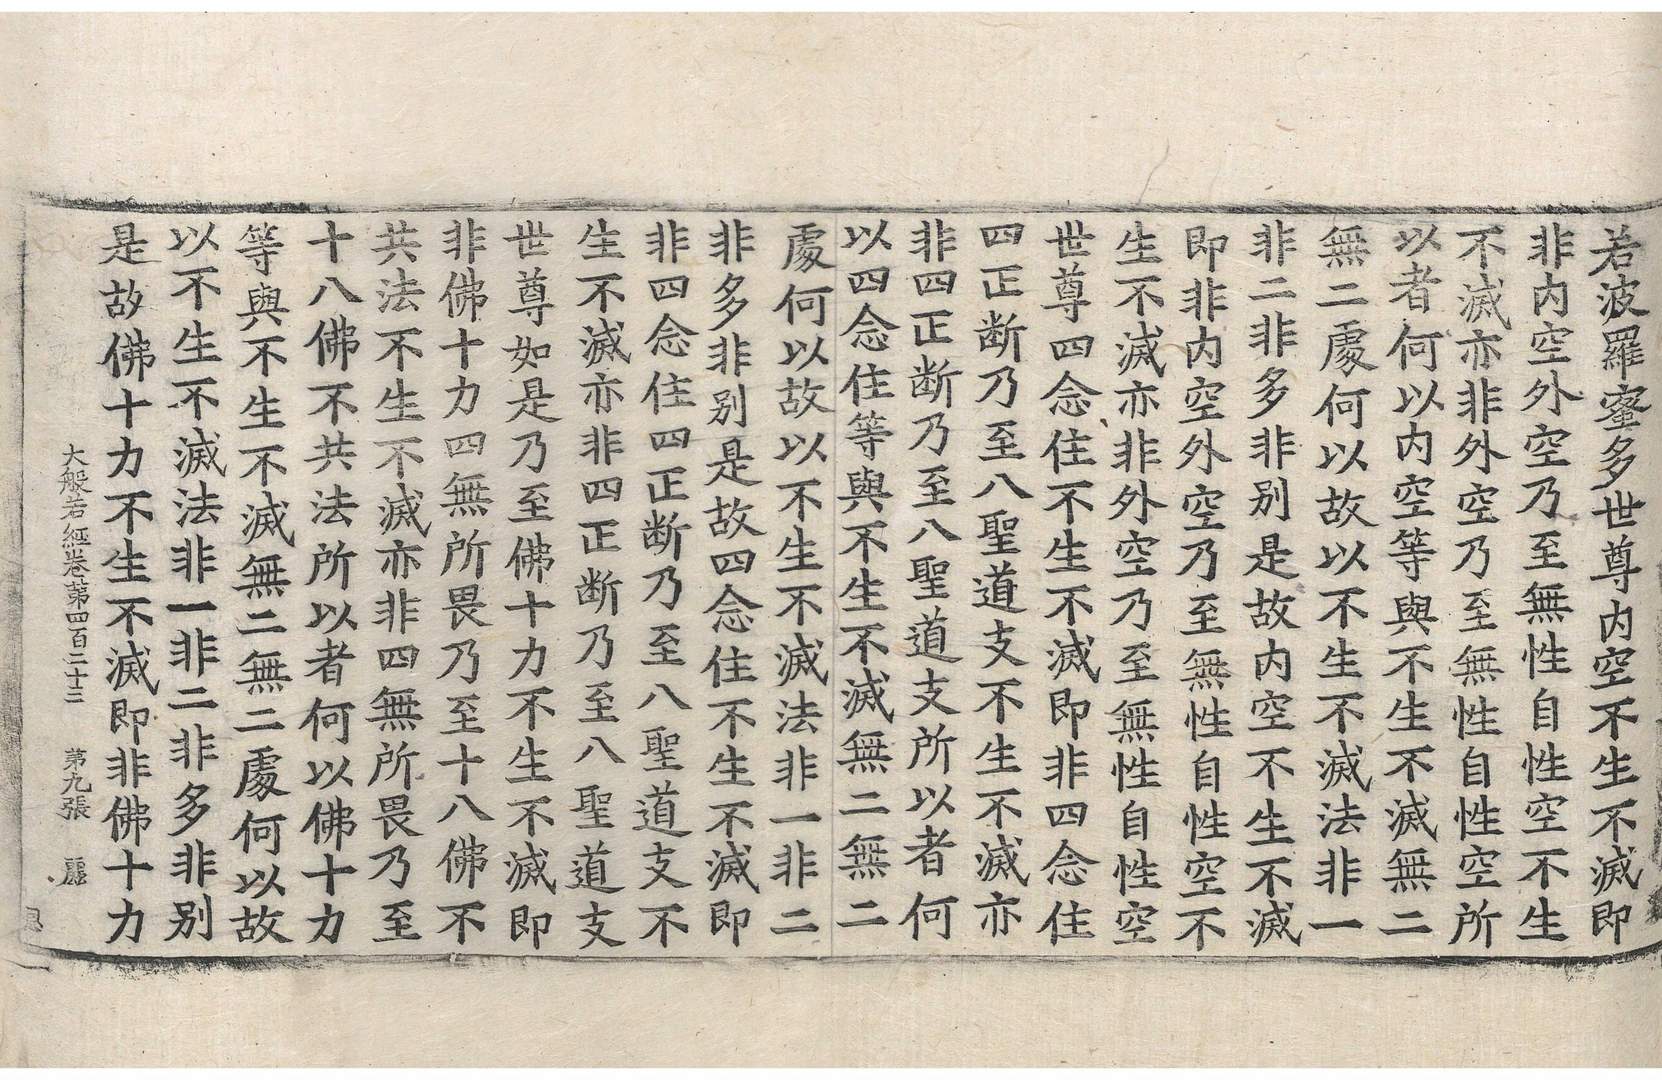 若波羅蜜多世尊內空不生不滅即
非內空外空乃至無性自性空不生
不滅亦非外空乃至無性自性空所
以者何以內空等與不生不滅無二
無二處何以故以不生不滅法非一
非二非多非別是故內空不生不滅
即非內空外空乃至無性自性空不
生不滅亦非外空乃至無性自性空
世尊四念住不生不滅即非四念住
四正断乃至八聖道支不生不滅亦
非四正断乃至八聖道支所以者何
以四念住等與不生不滅無二無二
處何以故以不生不滅法非一非二
非多非別是故四念住不生不滅即
非四念住四正断乃至八聖道支不
生不滅亦非四正断乃至八聖道支
世尊如是乃至佛十力不生不滅即
非佛十力四無所畏乃至十八佛不
共法不生不滅亦非四無所畏乃至
十八佛不共法所以者何以佛十力
等與不生不滅無二無二處何以故
以不生不滅法非一非二非多非別
是故佛十力不生不滅即非佛十力
大般若経卷第四百二十三 第九張 麗